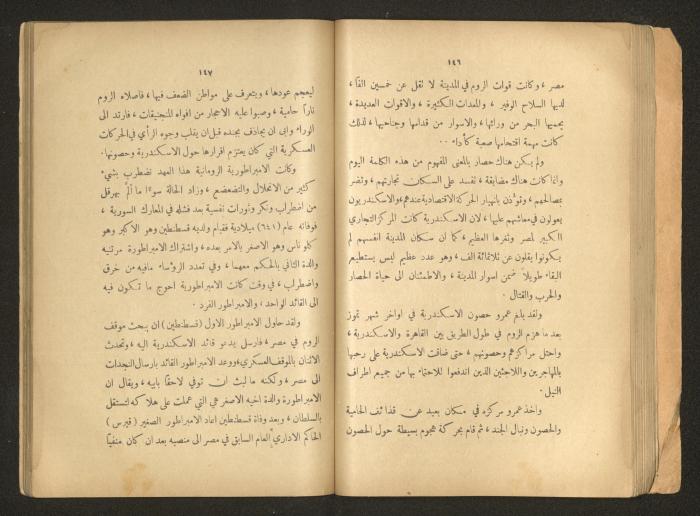 ١٤٦
مصر، وكانت قوات الروم في المدينة لا تقل عن خمسين الفاً،
لديها السلاح الوفير، والمعدات الكثيرة، والاقوات العديدة،
يحميها البحر من ورائها، والاسوار من قدامها وجناحيها، لذلك
كانت مهمة اقتحامها صعبة كأداء..
ولم يكن هناك حصار بالمعنى المفهوم من هذه الكلمة اليوم
وانما كانت هناك مضايقة، تفسد على السكان تجارتهم، وتضر
بمصالحهم، وتؤذن بانهيار الحركة الاقتصادية عندهم، والاسكندريون
يعولون في معاشهم عليها، لان الاسكندرية كانت المركز التجاري
الكبير لمصر وثغرها العظيم، كما ان سكان المدينة انفسهم لم
يكونوا يقلون عن ثلثمائة الف، وهو عدد عظيم ليس يستطيع
البقاء طويلاً ضمن اسوار المدينة، والاطمئنان الى حياة الحصار
والحرب والقتال.
ولقد بلغ عمرو حصون الاسكندرية في اواخر شهر تموز
بعد ما هزم الروم في طول الطريق بين القاهرة والاسكندرية،
واحتل مراكزهم وحصونهم، حتى ضاقت الاسكندرية على رحبها
بالمهاجرين واللاجئين الذين اندفعوا للاحتماء بها من جميع اطراف
النيل.
واخذ عمرو مركزه في مكان بعيد عن قذائف الحامية
والحصون ونبال الجند، ثم قام بحركة هجوم بسيطة حول الحصون
١٤٧
ليعجم عودها، ويتعرف على مواطن الضعف فيها، فاصلاه الروم
ناراً حامية، وصبوا عليه الاحجار من افواه المنجنيقات، فارتد الى
الوراء وابى ان يجازف بجنده قبل ان يقلب وجوه الرأي في الحركات
العسكرية التي كان يعتزم اقرارها حول الاسكندرية وحصونها.
وكانت الامبراطورية الرومانية هذا العهد تضطرب بشيء
كثير من الانحلال والتضعضع، وزاد الحالة سوءاً ما ألمّ بهرقل
من اضطراب وثورات نفسية بعد فشله في المعارك السورية،
فوفاته عام (٦٤١) ميلادية فقيام ولديه قسطنطين وهو الاكبر وهو
كلوناس وهو الاصغر بالامر بعده، واشتراك الامبراطورة مرتينه
والدة الثاني بالحكم معهما، وفي تعدد الرؤساء مافيه من خرق
واضطراب، في وقت كانت الامبراطورية احوج ما تكون فيه
الى القائد الواحد، والامبراطور الفرد.
ولقد حاول الامبراطور الاول (قسطنطين) ان يبحث موقف
الروم في مصر، فارسل يدعو قائد الاسكندرية اليه، وتحدث
الاثنان بالموقف العسكري، ووعد الامبراطور القائد بارسال النجدات
الى مصر، ولكنه ما لبث ان توفي لاحقاً بابيه، ويقال ان
الامبراطورة والدة اخيه الاصغر هي التي عملت على هلاكه لتستقل
بالسلطان، وبعد وفاة قسطنطين اعاد الامبراطور الصغير (قيرس)
الحاكم الاداري العام السابق في مصر الى منصبه بعد ان كان منفيّاً